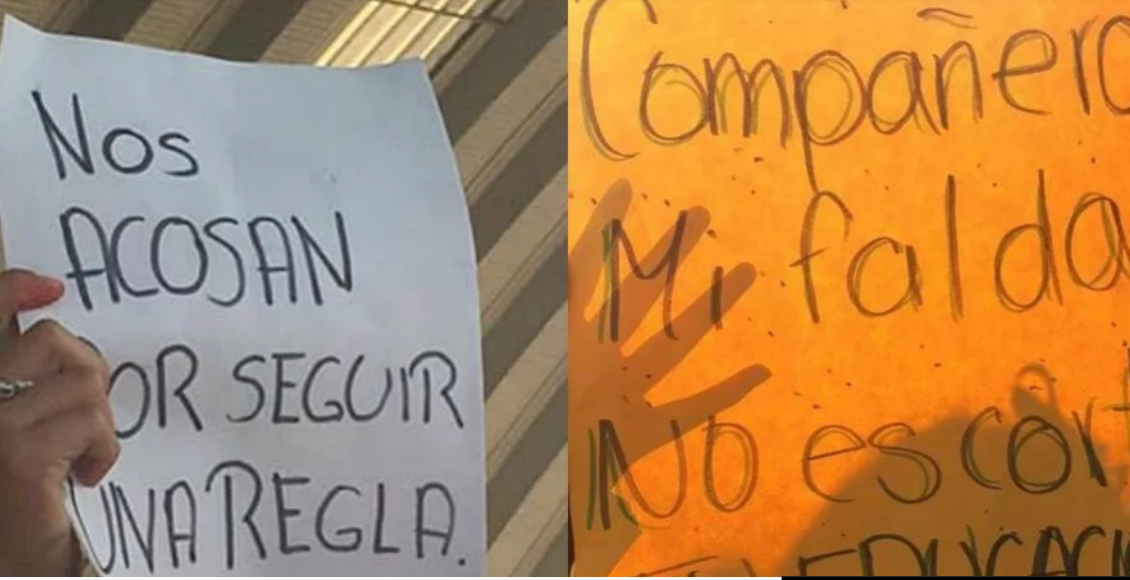 Nos
ACOSAN
POR SEGUIR
UNA REGLA.
Compañero
Mi falda
No es cort
EDUCACI